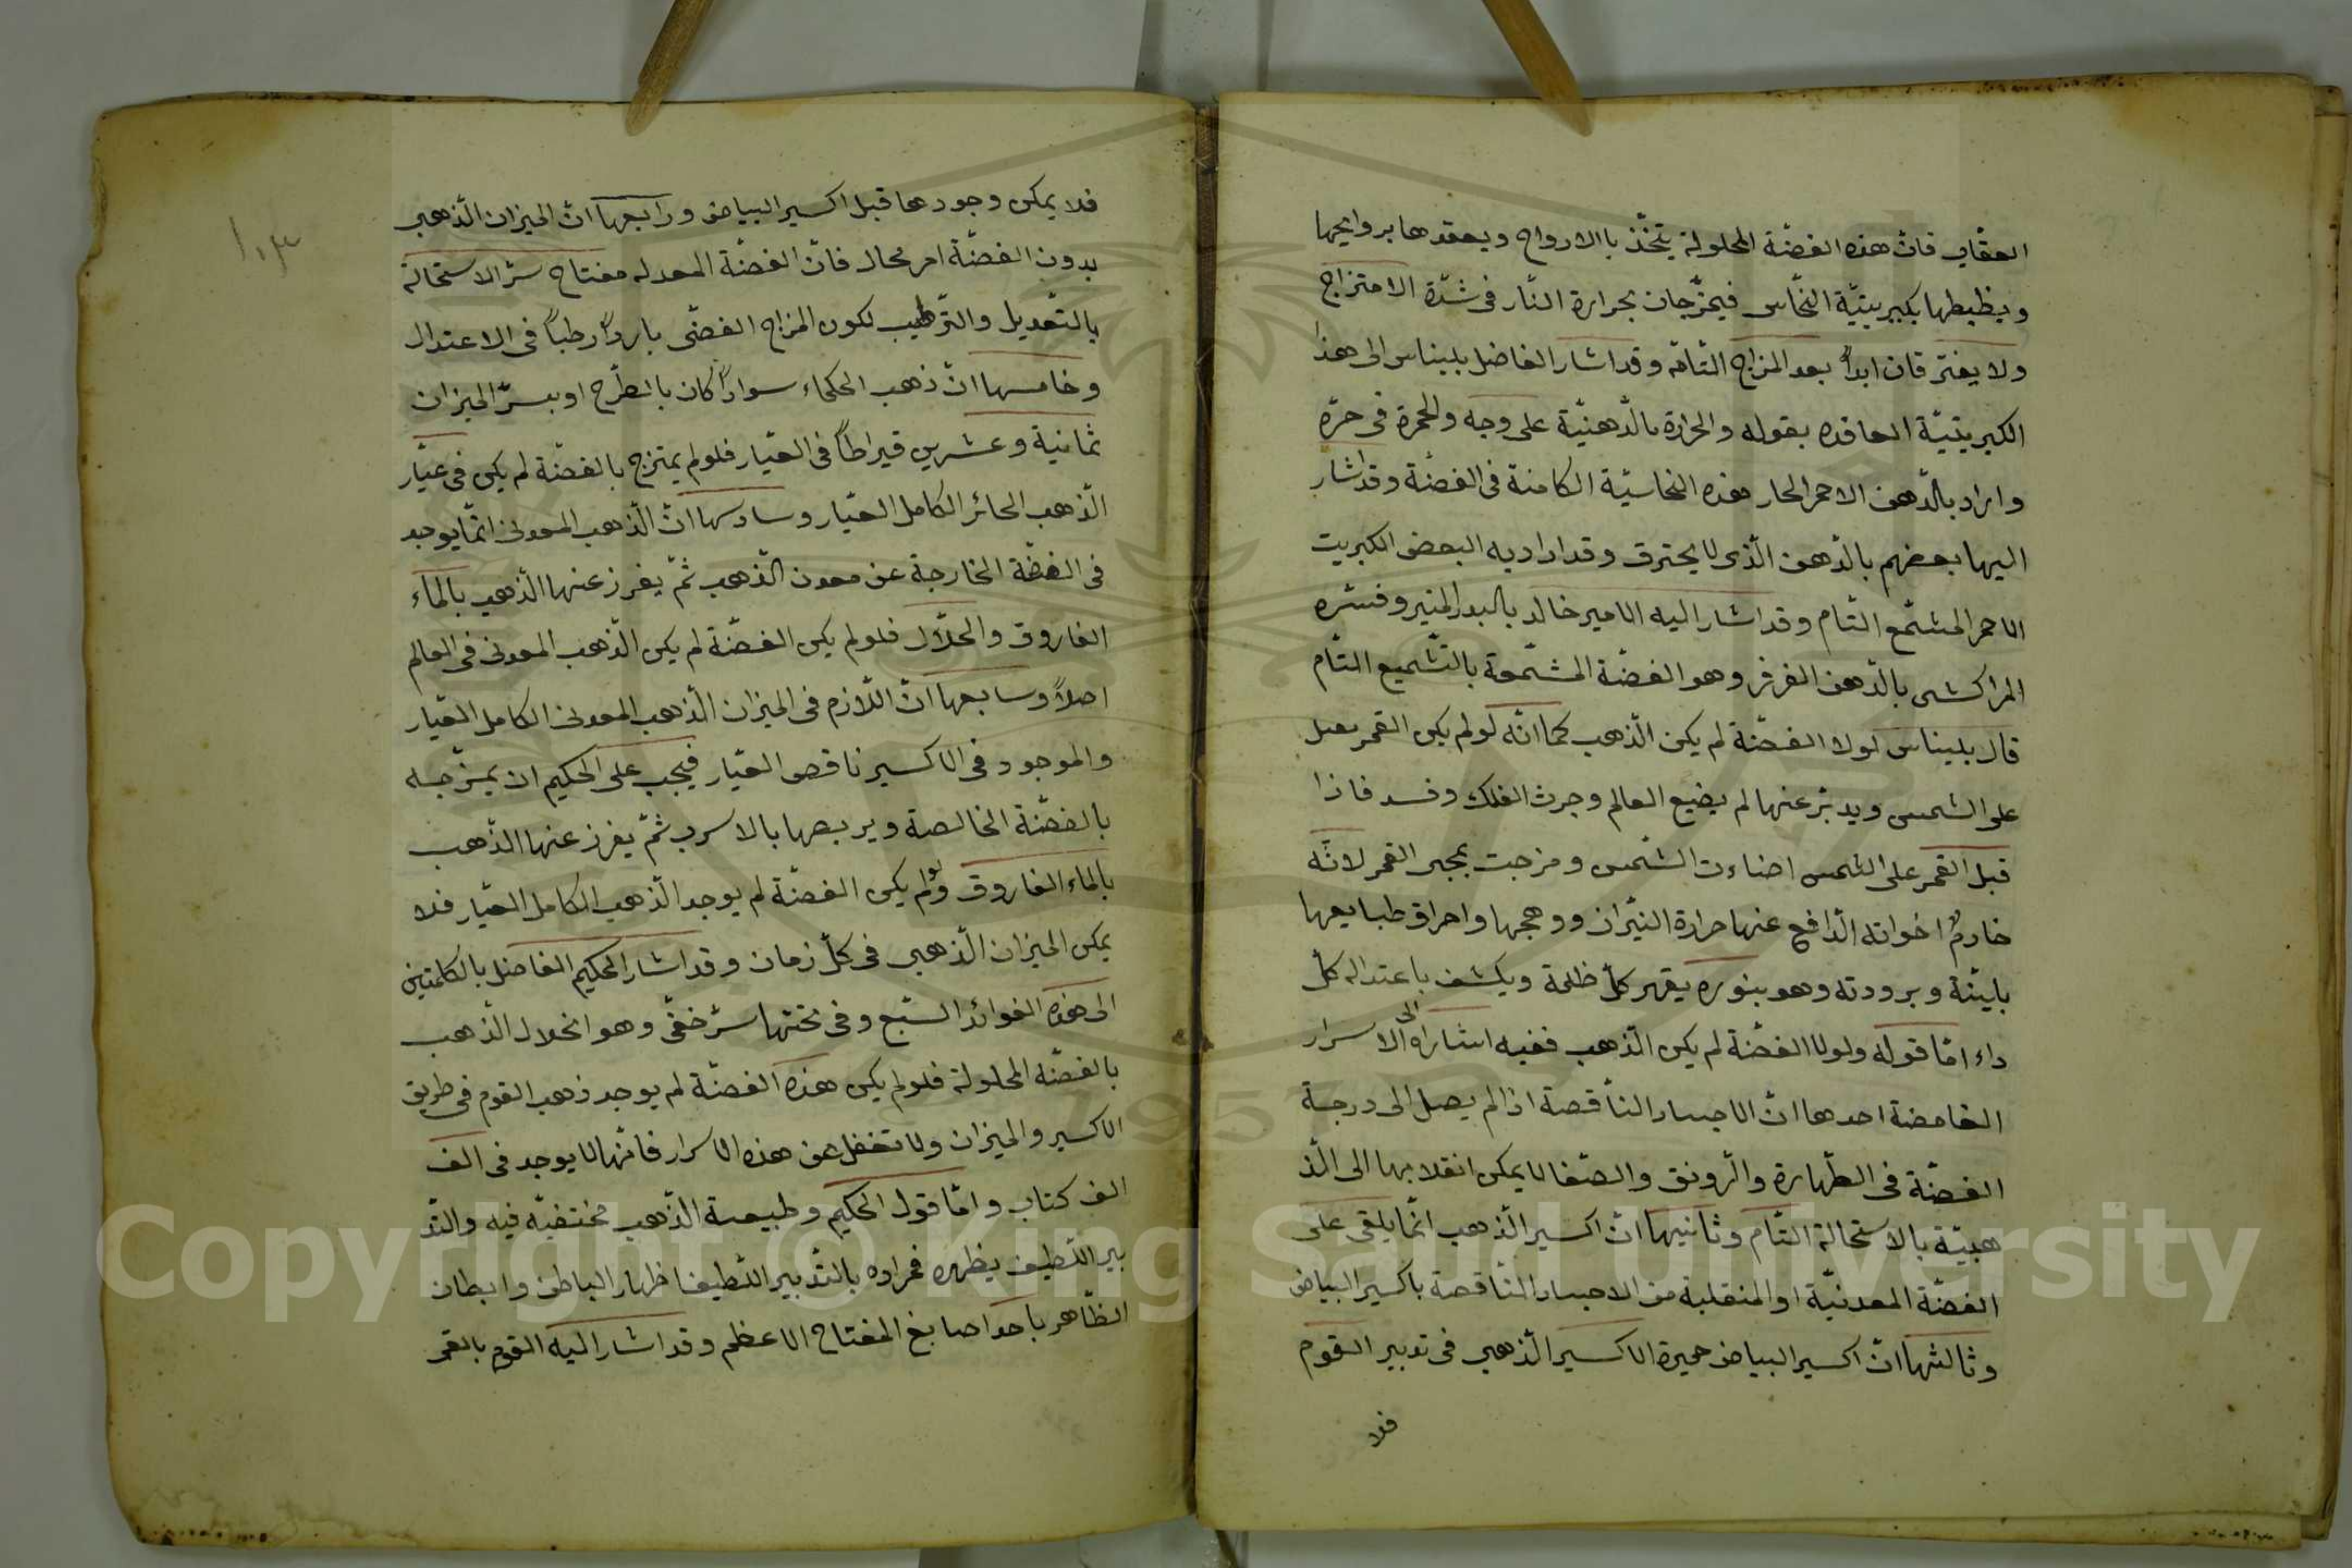 العقاب فان هذه الفضّة المحلولة يتخّذ بالارواح ويعقدها بروايحها
ويظبطها بكبريتيّة النحّاس فيمزّجان بحرارة النّار فى شدّة الامتزاج
ولا يفترّقان ابداً بعد المزاج التّامّه وقد اشار الفاضل بليناس الى هذا
الكبريتيّة العاقده بقوله والحرارة بالدّهنيّة على وجه والحمرة فى حرّه
واراد بالدّهن الاحمر الحار هذه النحاسيّة الكامنة فى الفضّة وقد اشار
اليها بعضهم بالدّهن الّذى لا يحترق وقد اراد به البعض الكبريت
الاحمر المشمّع التّام وقد اشار اليه الامير خالد بالبدر المنير وفسّره
المراكشى بالدّهن الفرفر وهو الفضّة المشمّعة بالتّشميع التّام
قال بليناس لولا الفضّة لم يكن الذّهب كما انّه لو لم يكن القمر
على الشمس ويدبّر عنها لم يضيع العالم وجرت الفلك وفسد فاذا
قبل القمر على الشمس اضاءت الشّمس ومزجت بمجى القمر لانّه
خادم اخواته الدّافع عنها حرارة النيّران ووهجها واحراق طبايعها
بايّنة وبرودته وهو بنوره يقهر كلّ ظلمة ويكشف باعتداله كلّ
داء امّا قوله ولولا الفضّة لم يكن الذّهب ففيه اشاراة الى الاسرار
الغامضة احدها انّ الاجساد النّاقصة اذا لم يصل الى درجة
الفضّة فى الطّهارة والرّونق والصّفا لا يمكن انقلابها الى الذّ
هبيّة بالاستحالة التّام وثانيها انّ اكسير الذّهب انّما يلقى على
الفضّة المعدنيّة او المنقلبة من الاجساد النّاقصة باكسير البياض
وثالثها انّ اكسير البياض خميرة الاكسير الذّهبى فى تدبير القوم
فلا
١٠٣
فلا يمكن وجودها قبل اكسير البياض ورابعها انّ الميزان الذّهبى
بدون الفضّة امر محال فانّ الفضّة المعدله مفتاح سرّ الاستحالة
بالتّعديل والتّرطيب لكون المزاج الفضّى بارداً رطباً فى الاعتدال
وخامسها انّ ذهب الحكماء سواءً كان بالطّرح او بسرّ الميزان
ثمانية وعشرين قيراطاً فى العيّار فلو لم يمتزج بالفضّة لم يكن فى عيّار
الذّهب الجائز الكامل العيّار وسادسها انّ الذّهب المعدنى انّما يوجد
فى الفضّة الخارجة عن معدن الذّهب ثمّ يفرز عنها الذّهب بالماء
الفاروق والحلّال فلو لم يكن الفضّة لم يكن الذّهب المعدنى فى العالم
اصلاً وسابعها انّ اللّازم فى الميزان الذّهب المعدنى الكامل العيّار
والموجود فى الاكسير ناقص العيّار فيجب على الحكيم ان يمزّجه
بالفضّة الخالصة ويربصها بالاسرب ثمّ يفرز عنها الذّهب
بالماء الفاروق ولو لم يكن الفضّة لم يوجد الذّهب الكامل العيّار فلا
يمكن الميزان الذّهبى فى كلّ زمان وقد اشار الحكيم الفاضل بالكلمتين
الى هذه الفوائد السّبع وفى تحتها سرّ خفّى وهو انحلال الذّهب
بالفضّة المحلولة فلو لم يكن هذه الفضّة لم يوجد ذهب القوم فى طريق
الاكسير والميزان ولا تغفل عن هذه الاسرار فانّها لا يوجد فى الف
الف كتاب وامّا قول الحكيم وطبيعة الذّهب مختفيّة فيه والتّد
بير اللّطيف يظهره فمراده بالتّدبير اللّطيف اظهار الباطن وابطان
الظّاهر باحد اصابع المفتاح الاعظم وقد اشار اليه القوم بالقمر
Copyright © King Saud University
1957